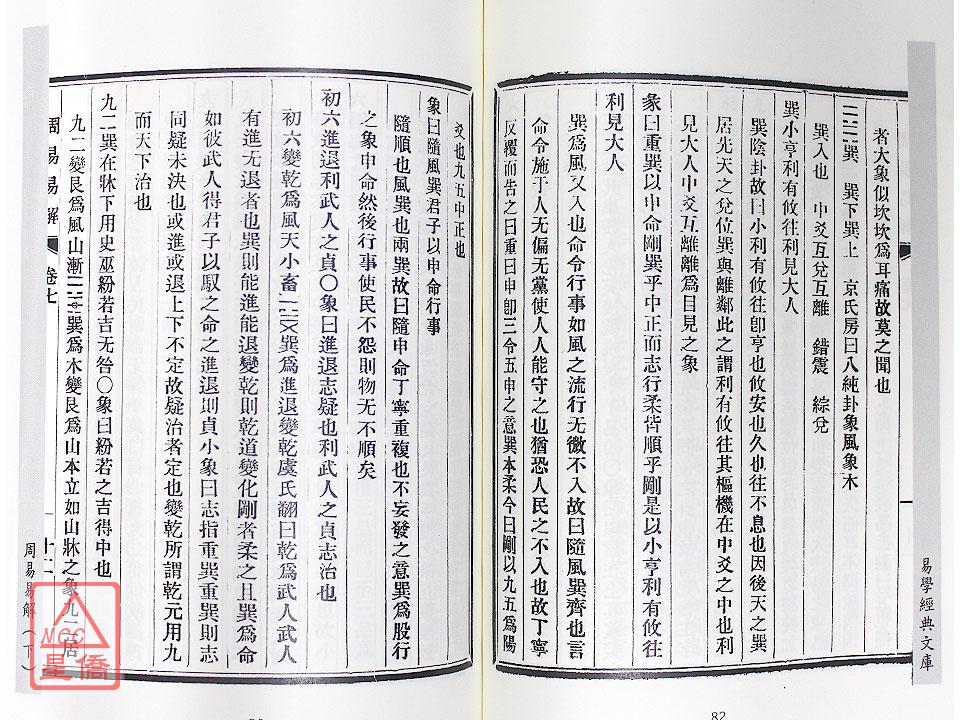 易學經典文庫
者大象似坎坎爲耳痛故莫之聞也
巽 巽下巽上 京氏房曰八純卦象風象木
巽入也 中爻互兌互離 錯震 綜兌
巽小亨利有攸往利見大人
巽陰卦故曰小利有攸往卽亨也攸安也久也往不息也因後天之巽
居先天之兌位巽與離鄰此之謂利有攸往其樞機在中爻之中也利
見大人中爻互離離爲目見之象
彖曰重巽以申命剛巽乎中正而志行柔皆順乎剛是以小亨利有攸往
利見大人
巽爲風又入也命令行事如風之流行无微不入故曰隨風巽齊也言
命令施于人无偏无黨使人人能守之也猶恐人民之不入也故丁寧
反覆而告之曰重曰申卽三令五申之意巽本柔今曰剛以九五爲陽
82
爻也九五中正也
象曰隨風巽君子以申命行事
隨順也風巽也兩巽故曰隨申命丁寧重複也不妄發之意巽爲股行
之象申命然後行事使民不怨則物无不順矣
初六進退利武人之貞〇象曰進退志疑也利武人之貞志治也
初六變乾爲風天小畜巽爲進退變乾虞氏翻曰乾爲武人武人
有進无退者也巽則能進能退變乾則乾道變化剛者柔之且巽爲命
如彼武人得君子以馭之命之進退則貞小象曰志指重巽重巽則志
同疑未決也或進或退上下不定故疑治者定也變乾所謂乾元用九
而天下治也
九二巽在牀下用史巫紛若吉无咎〇象曰紛若之吉得中也
九二變艮爲風山漸巽爲木變艮爲山本立如山牀之象九二居
周易易解 卷七 十二
周易易解(下)
NCC
星僑